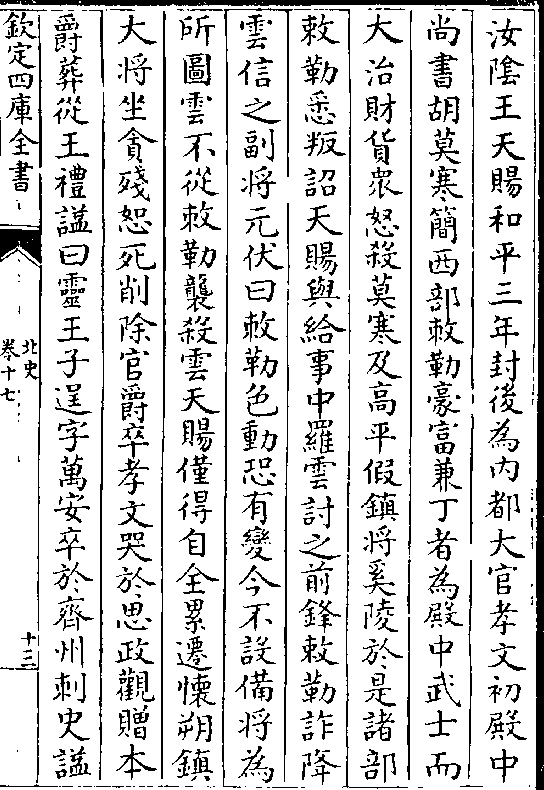 汝陰王天賜和平三年封後為內都大官孝文初殿中
尚書胡莫寒簡西部敕勒豪富兼丁者為殿中武士而
大治財貨衆怒殺莫寒及高平假鎮將奚陵於是諸部
敕勒悉叛詔天賜與給事中羅雲討之前鋒敕勒詐降
雲信之副將元伏曰敕勒色動恐有變今不設備將為
所圖雲不從敕勒襲殺雲天賜僅得自全累遷懷朔鎮
大將坐貪殘恕死削除官爵卒孝文哭於思政觀贈本
爵葬從王禮諡曰靈王子逞字萬安卒於齊州刺史諡
欽定四庫全書
北史
卷十七
十三